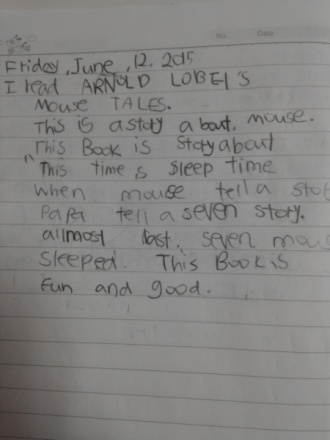 No. Date
Friday, June, 12, 2015
I read ARNOLD LOBEl'S
Mouse TALES.
This is a story about, mouse.
This Book is Story about
"This time is Sleep time
when mouse tell a stor
PaPa tell a seven story.
allmost last, seven mous
Sleeped. This Book is
Fun and good.